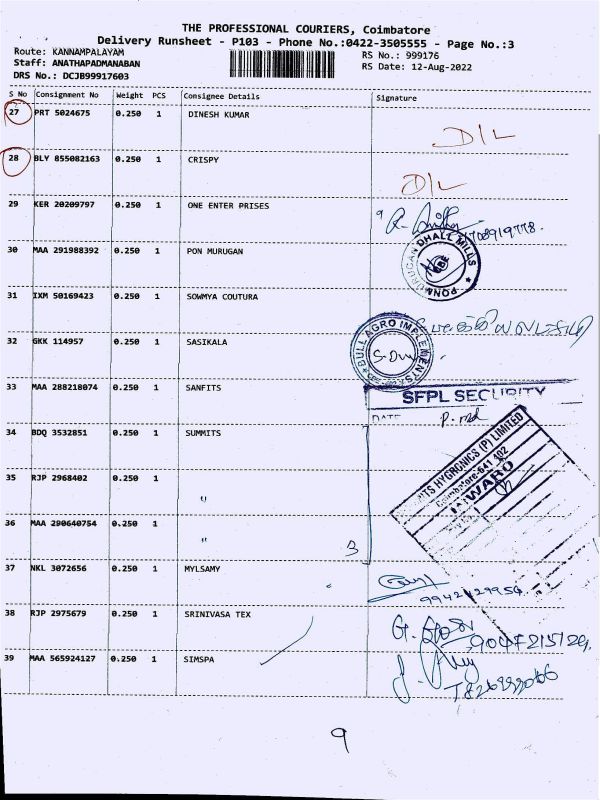 THE PROFESSIONAL COURIERS, Coimbatore
Delivery Runsheet - P103 - Phone No.:0422-3505555 - Page No.:3
Route: KANNAMPALAYAM
RS No.: 999176
Staff: ANATHAPADMANABAN
RS Date: 12-Aug-2022
DRS No.: DCJB99917603
S No Consignment No Weight PCS Consignee Details Signature
27 PRT 5024675 0.250 1 DINESH KUMAR
D/L
28 BLY 855082163 0.250 1 CRISPY
D/L
29 KER 20209797 0.250 1 ONE ENTER PRISES
30 MAA 291988392 0.250 1 PON MURUGAN
PONMURUGAN DHALL MILLS
31 IXM 50169423 0.250 1 SOWMYA COUTURA
32 GKK 114957 0.250 1 SASIKALA
BULL AGRO IMPLEMENTS
33 MAA 288218074 0.250 1 SANFITS
SFPL SECURITY
DATE
34 BDQ 3532851 0.250 1 SUMMITS
HYGRONICS (P) LIMITED
Coimbatore-641 402
INWARD
35 RJP 2968402 0.250 1 "
36 MAA 290640754 0.250 1 "
3
37 NKL 3072656 0.250 1 MYLSAMY
38 RJP 2975679 0.250 1 SRINIVASA TEX
39 MAA 565924127 0.250 1 SIMSPA
9